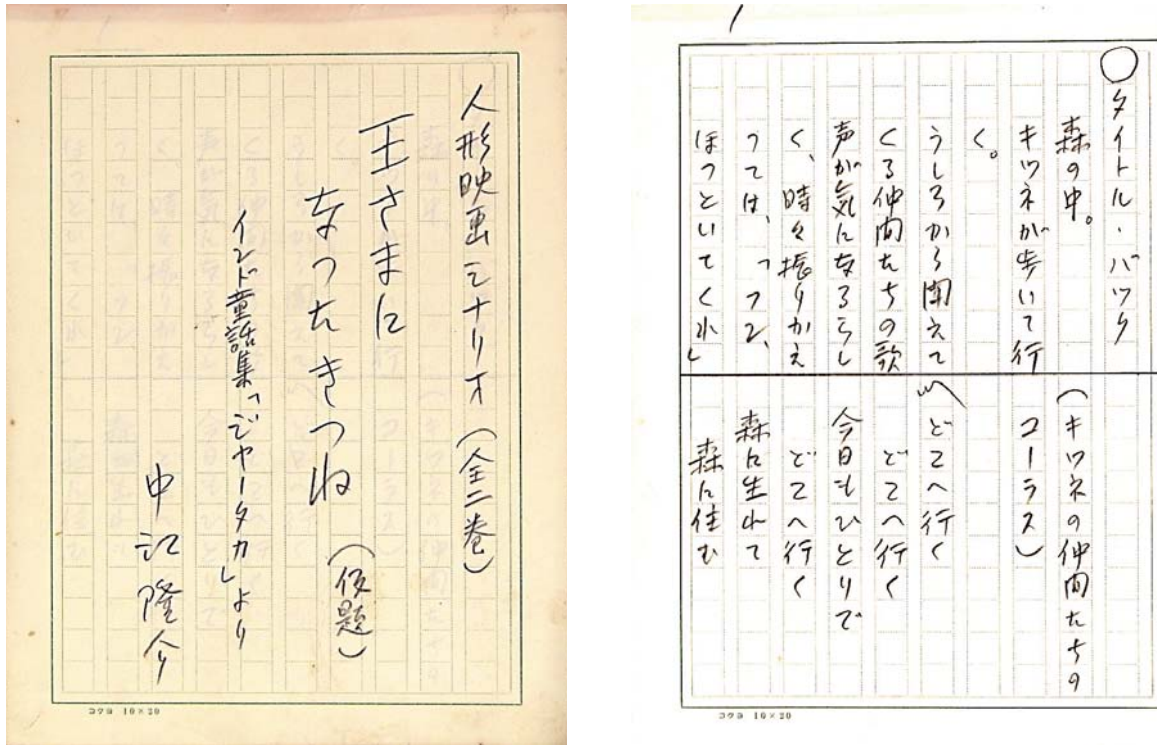 人形映画シナリオ(全二巻)
王さまに
なったきつね
(仮題)
インド童話集「ジャータカ」より
中江隆介
コクヨ 10×20
1
○タイトル・バック
森の中。
キツネが歩いて行
く。
うしろから聞えて
くる仲間たちの歌
声が気になるらし
く、時々振りかえ
っては、「フン、
ほっといてくれ」
(キツネの仲間たちの
コーラス)
〽どこへ行く
どこへ行く
今日もひとりで
どこへ行く
森に生れて
森に住む
コクヨ 10×20